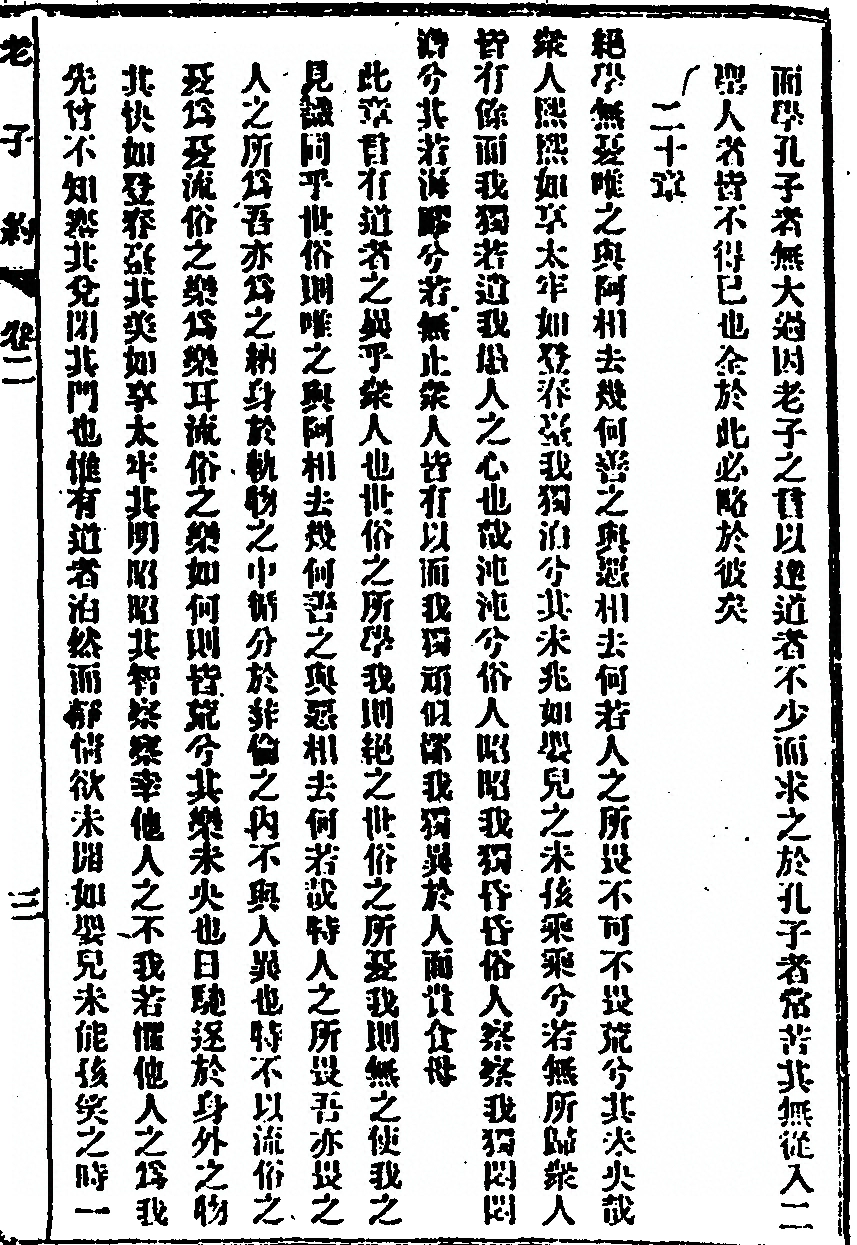 而學孔子者無大過因老子之言以達道者不少而求之於孔子者常苦其無從入二
聖人者皆不得已也全於此必略於彼矣
二十章
絕學無憂唯之與阿相去幾何善之與惡相去何若人之所畏不可不畏荒兮其未央哉
衆人熙熙如享太牢如登春臺我獨泊兮其未兆如嬰兒之未孩乘乘兮若無所歸衆人
皆有餘而我獨若遺我愚人之心也哉沌沌兮俗人昭昭我獨昏昏俗人察察我獨悶悶
澹兮其若海飂兮若無止衆人皆有以而我獨頑似鄙我獨異於人而貴食母
此章言有道者之異乎衆人也世俗之所學我則絕之世俗之所憂我則無之使我之
見識同乎世俗則唯之與阿相去幾何善之與惡相去何若哉特人之所畏吾亦畏之
人之所爲吾亦爲之納身於軌物之中循分於彝倫之內不與人異也特不以流俗之
憂爲憂流俗之樂爲樂耳流俗之樂如何則皆荒兮其樂未央也日馳逐於身外之物
其快如登春臺其美如享太牢其明昭昭其智察察幸他人之不我若懼他人之爲我
先曾不知塞其兌閉其門也惟有道者泊然而靜情欲未開如嬰兒未能孩笑之時一
老子約 卷二 三